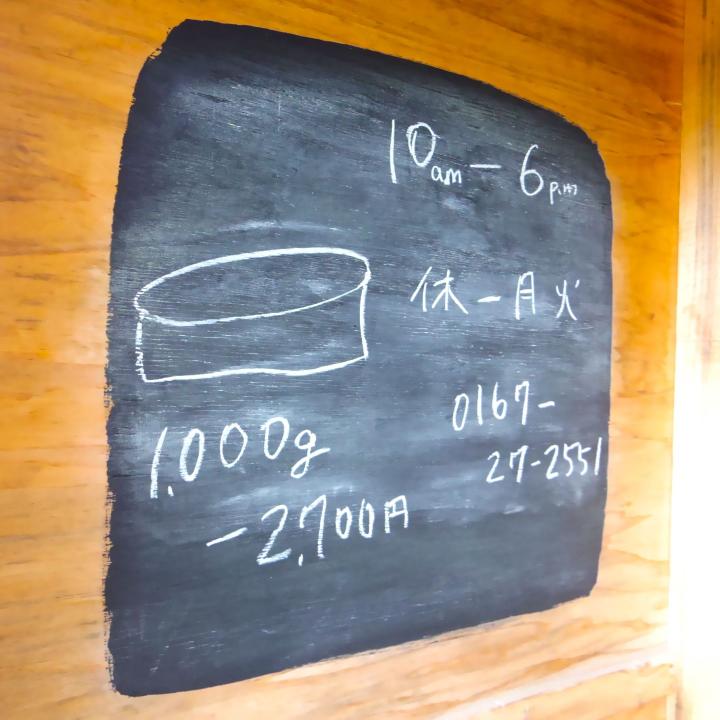 10am - 6p.m
休 - 月 火
0167-
27-2551
1,000g
- 2,700円